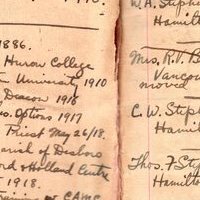 1886.
Huron College
University 1910
Deacon 1915
Options 1917
Priest May 26/18.
of Desboro
& Holland Centre
1918.
of C.A.M.C.
W. A. Steph
Hamilton
Mrs. R. V. B
Vancou
moved
C. W. Steph
Hamil
Thos. F. Steph
Hamilton